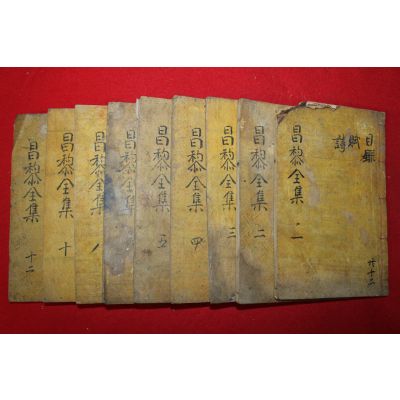 目錄
賦
詩
昌黎全集 二
共十二
昌黎全集 二
昌黎全集 三
昌黎全集 四
昌黎全集 五
昌黎全集
昌黎全集 八
昌黎全集 十
昌黎全集 十二